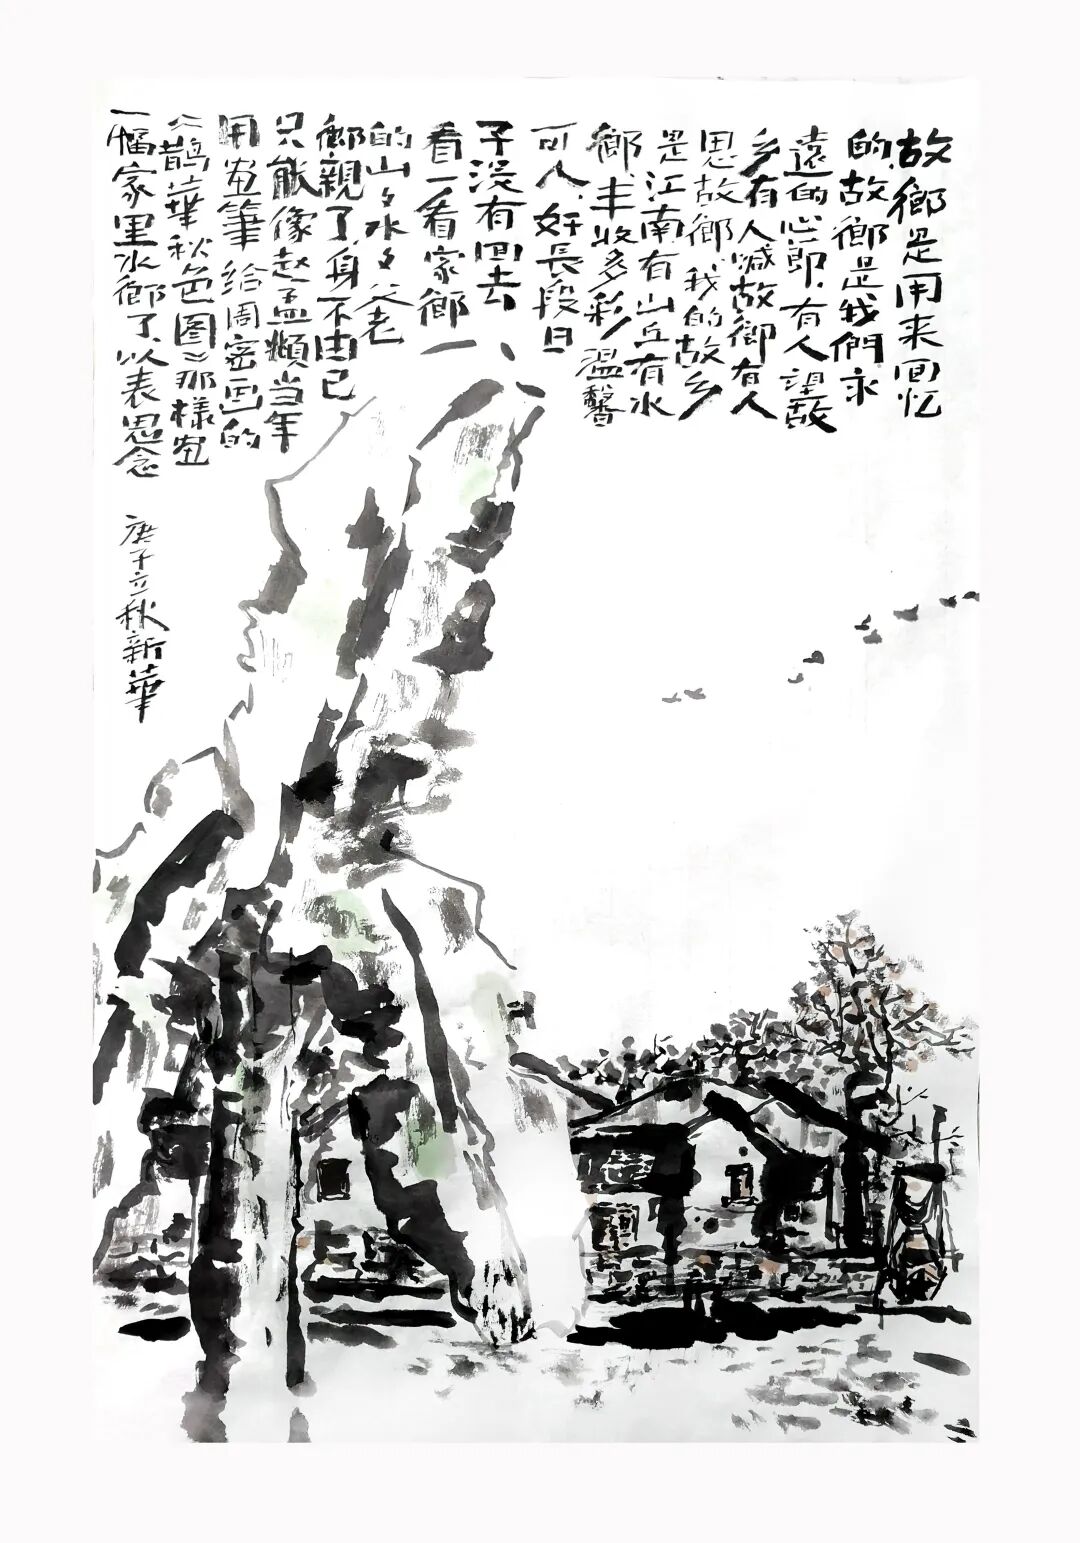 故鄉是用来回忆
的,故鄉是我們永
遠的心即,有人望故
乡有人喊故鄉有人
思故鄉,我的故乡
是江南有山丘有水
鄉,丰收多彩,温馨
可人,好長段日
子没有回去
看一看家鄉
的山々水々父老
鄉親了,身不由已
只能像赵孟頫当年
用画筆给周密画的
《鵲華秋色图》那樣画
一幅家里水鄉了,以表思念
庚子立秋新華